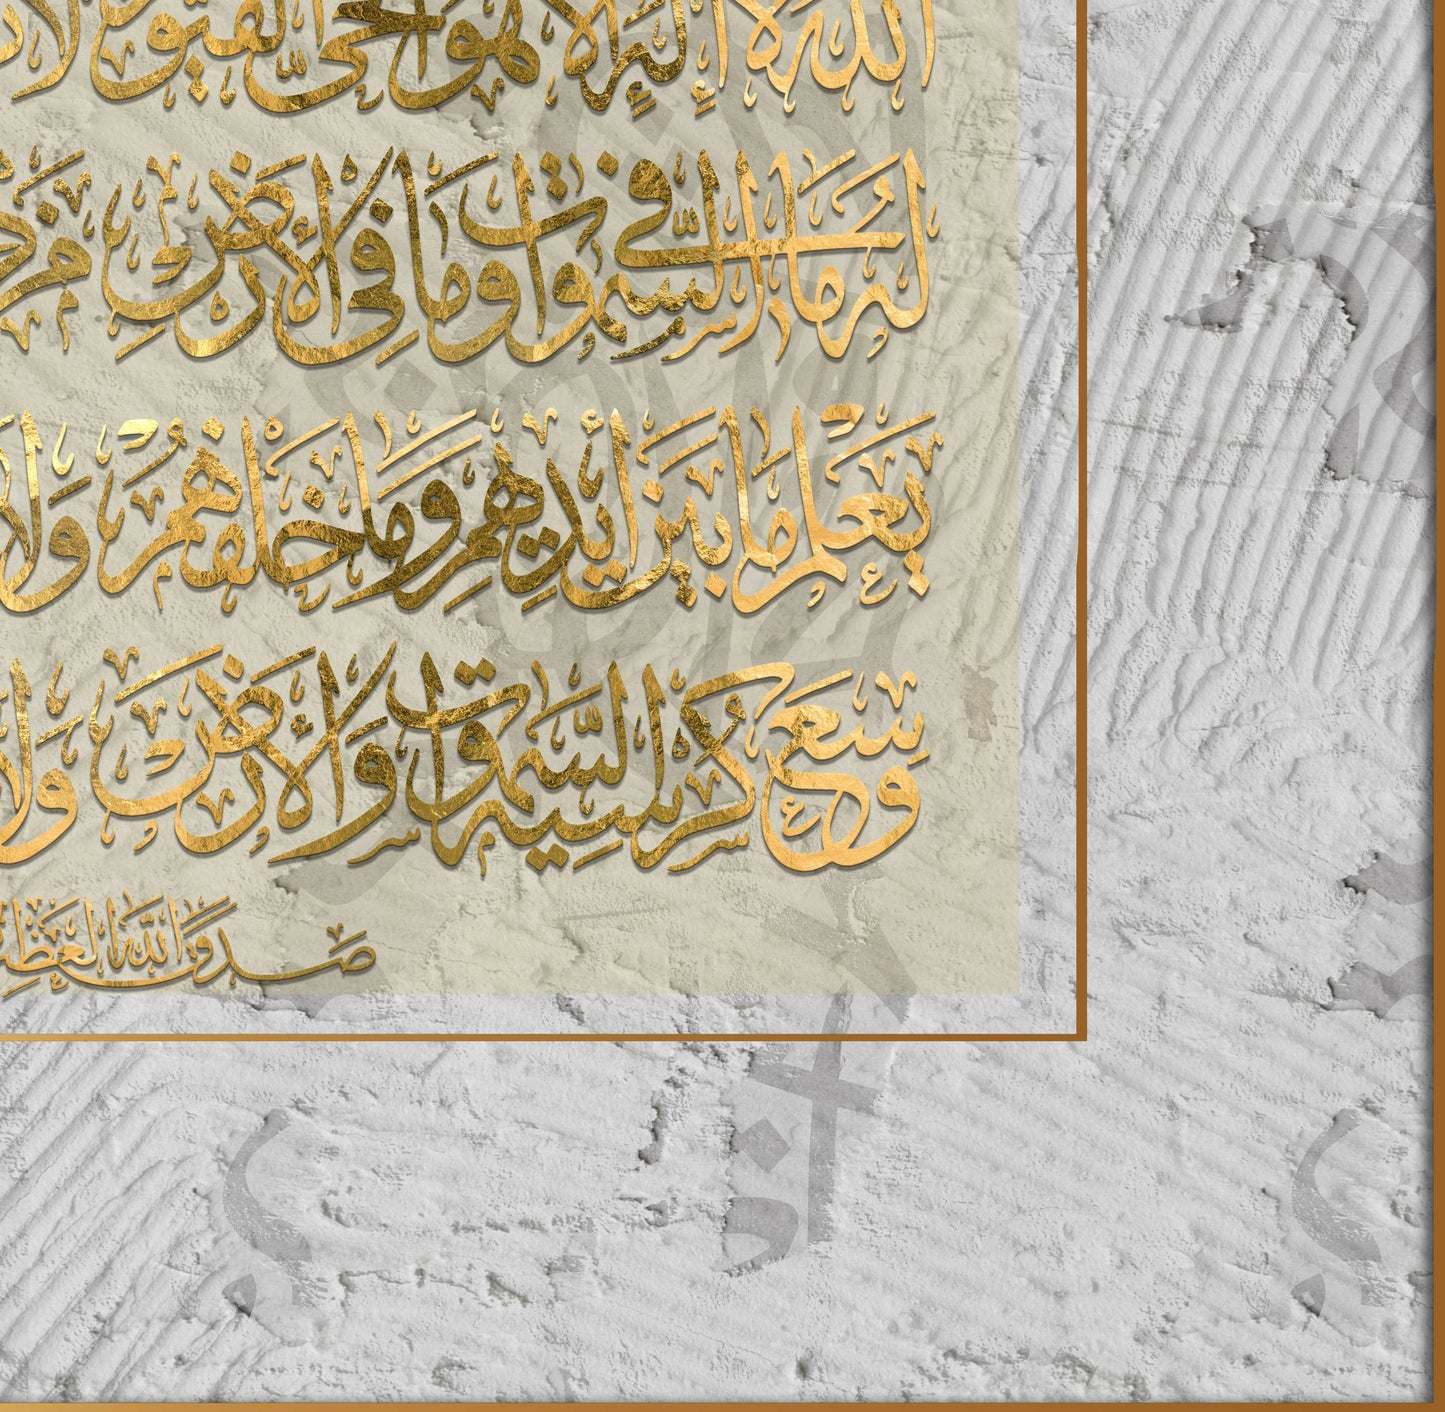 ٱللَّهُ لَا إِلَٰهَ إِلَّا هُوَ ٱلْحَىُّ ٱلْقَيُّومُ لَا
لَهُۥ مَا فِى ٱلسَّمَٰوَٰتِ وَمَا فِى ٱلْأَرْضِ مَن
يَعْلَمُ مَا بَيْنَ أَيْدِيهِمْ وَمَا خَلْفَهُمْ وَلَا
وَسِعَ كُرْسِيُّهُ ٱلسَّمَٰوَٰتِ وَٱلْأَرْضَ وَلَا
صَدَقَ ٱللَّهُ